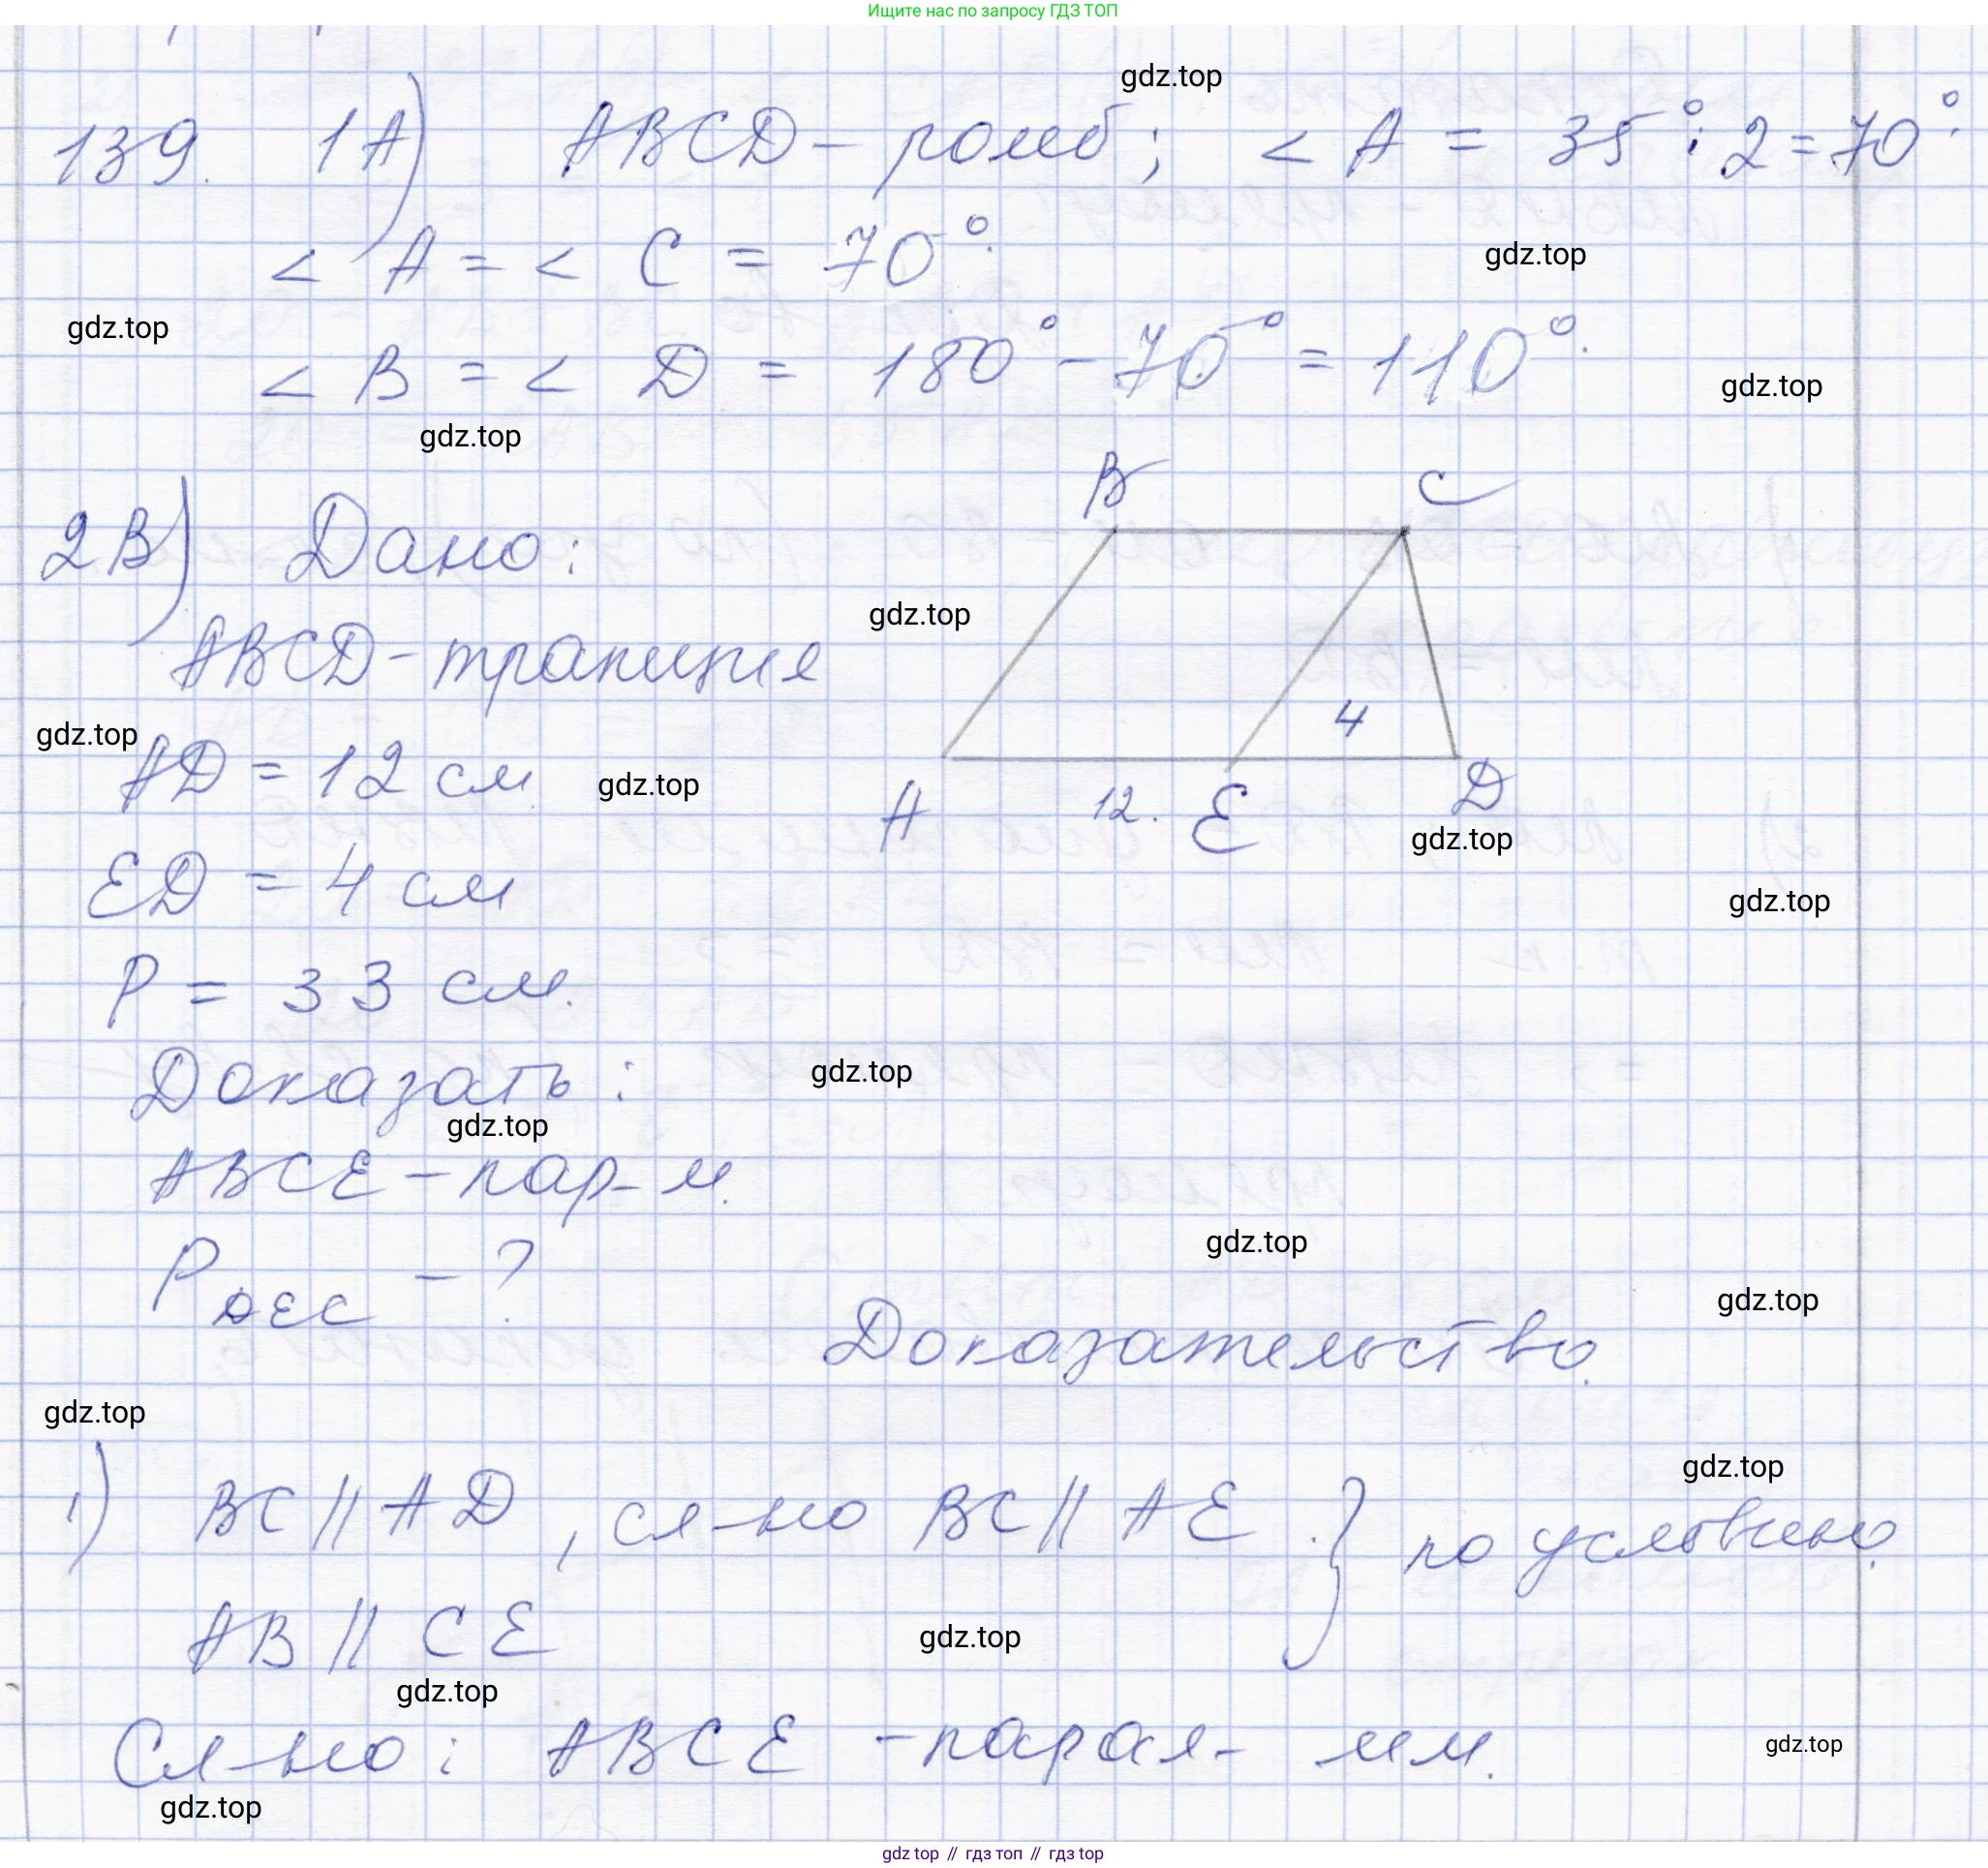 Ищите нас по запросу ГДЗ ТОП
gdz.top
139. 1А) ABCD - ромб; < A = 35° : 2 = 70°.
< A = < C = 70°.
gdz.top
gdz.top
< B = < D = 180° - 70° = 110°.
gdz.top
gdz.top
B C
2В) Дано:
gdz.top
ABCD - трапеция
gdz.top
4
AD = 12 см
gdz.top
A 12. E D
gdz.top
ED = 4 см
gdz.top
P = 33 см.
Доказать:
gdz.top
gdz.top
ABCE - пар-м.
gdz.top
P DEC - ?
gdz.top
Доказательство.
gdz.top
gdz.top
1) BC || AD, сл-но BC || AE } по условию.
AB || CE
gdz.top
gdz.top
Сл-но: ABCE - парал-мм.
gdz.top
gdz.top
gdz top // гдз топ // гдз top